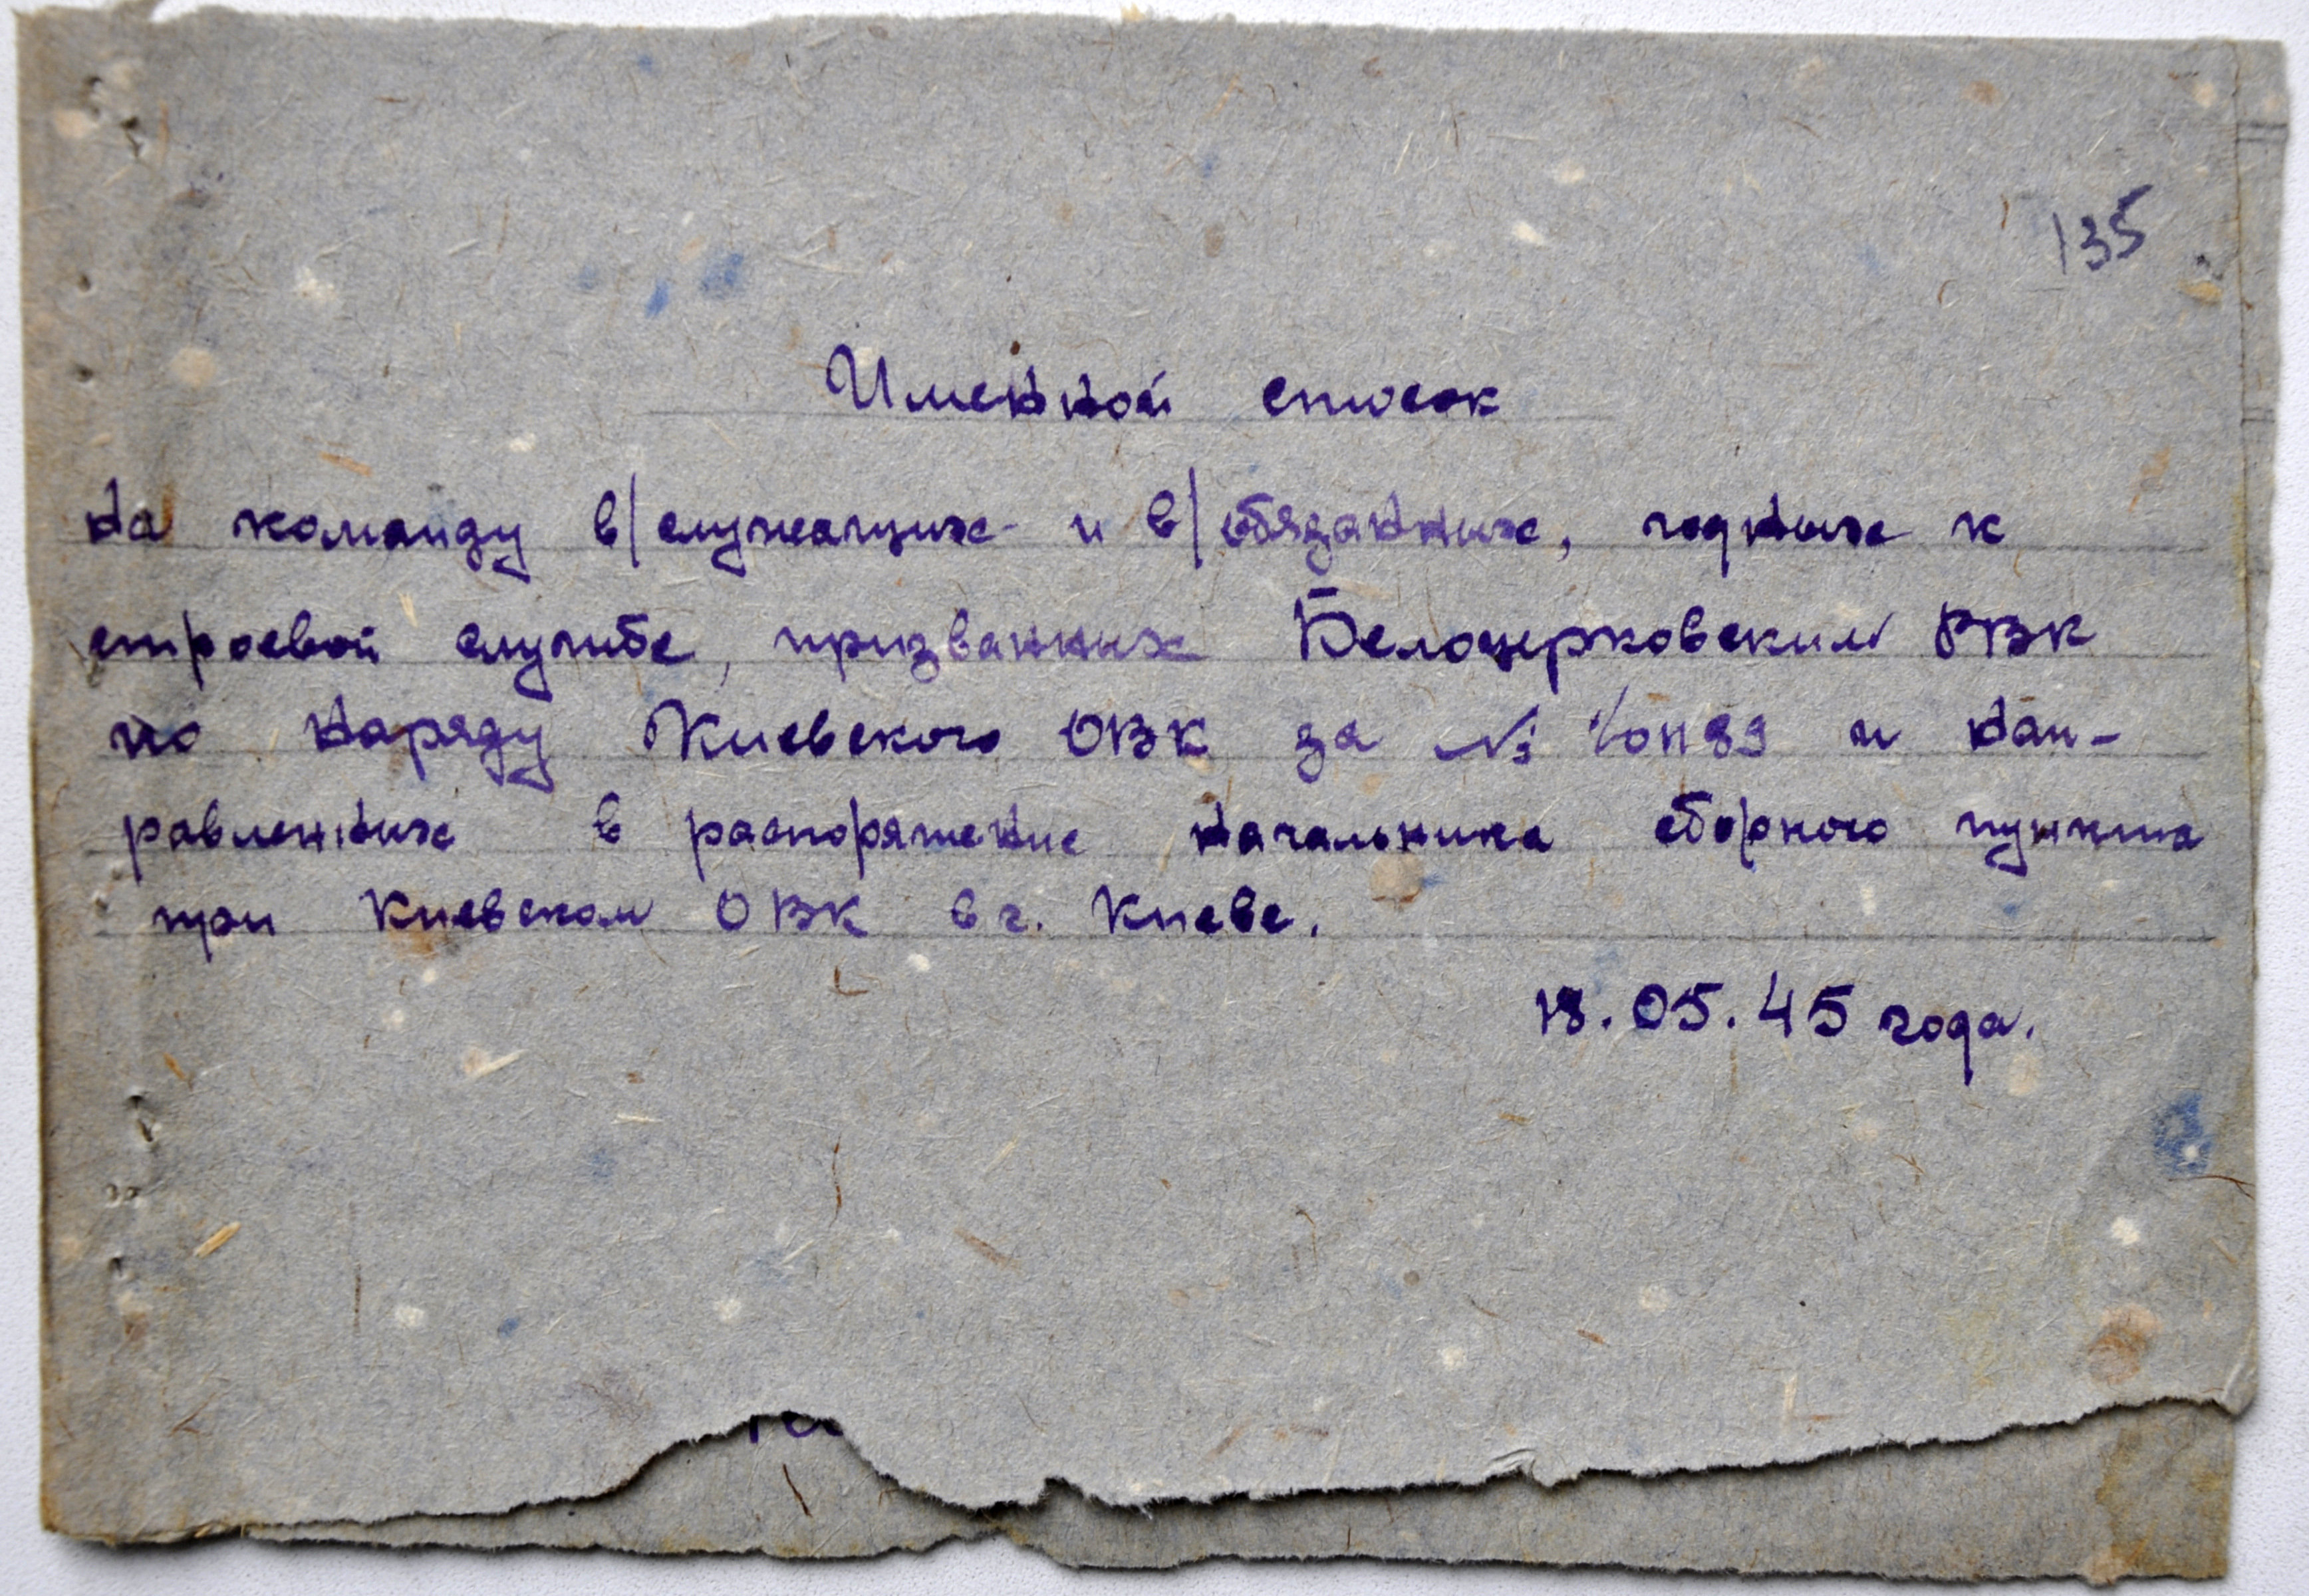 135
Именной список
на команду в/служащих и в/обязанных, годных к
строевой службе, призванных Белоцерковским РВК
по наряду Киевского ОВК за № и нап-
равленных в распоряжение начальника сборного пункта
при Киевском ОВК в г. Киеве.
18.05.45 года.